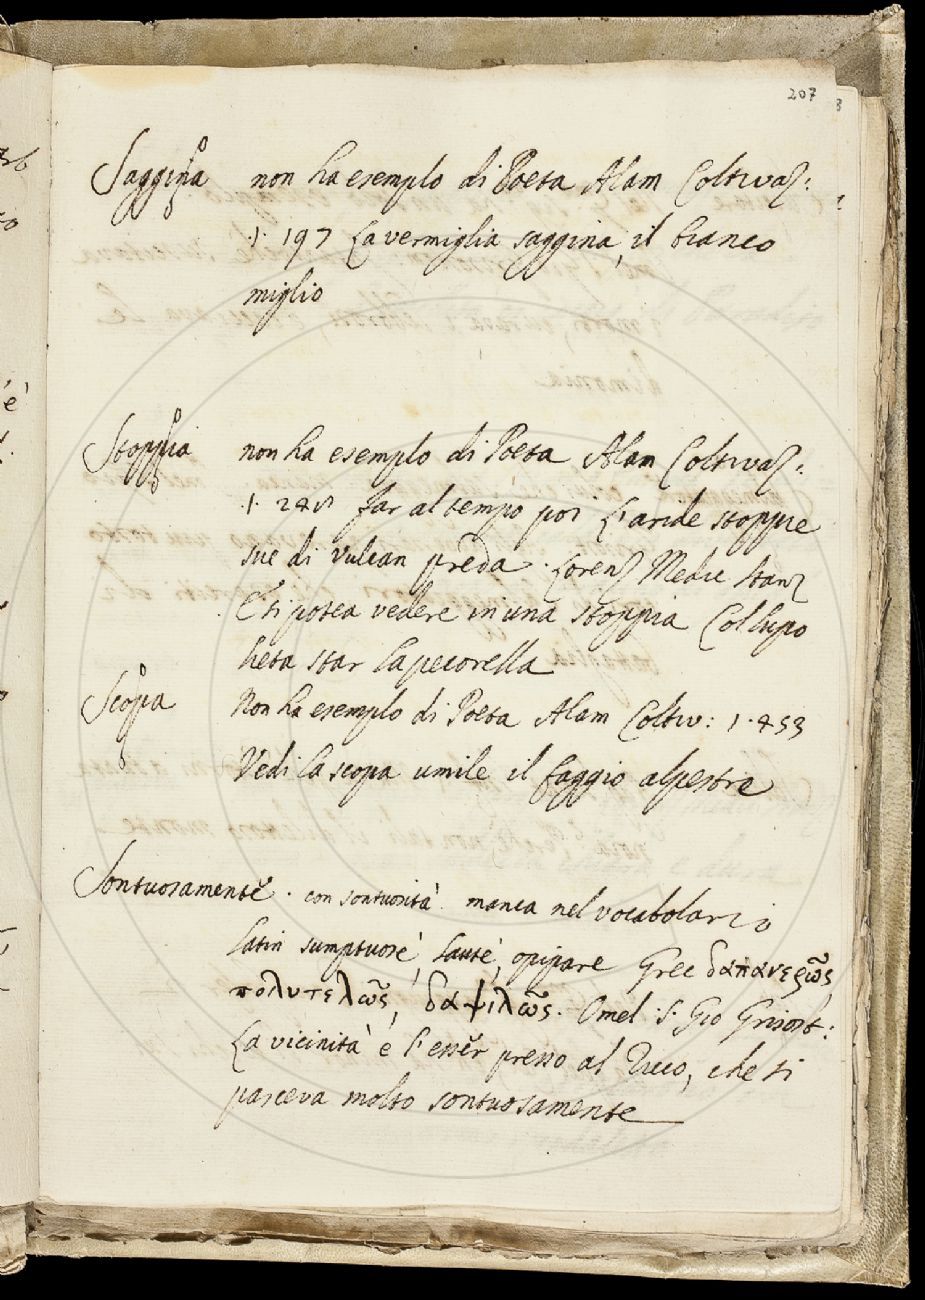 207
Saggina non ha esemplo di Poeta Alam Coltivaz:
1. 197 La vermiglia saggina, il bianco
miglio
Stoppia non ha esemplo di Poeta Alam Coltivaz:
1. far al tempo poi l'aride stoppie
sue di Vulcan preda. Lorenz Medic stanz
E si potea vedere in una stoppia Col lupo
lieta star la pecorella
Scopa Non ha esemplo di Poeta Alam Coltiv: 1. 453
Vedi la scopa umile il faggio alpestre
Sontuosamente. con sontuosità. manca nel vocabolario
Latin sumptuose, laute, opipare Grec δαπανερῶς,
πολυτελῶς, δαψιλῶς. Omel S. Gio Grisost:
La vicinità e l'esser presso al Ricco, che si
pasceva molto sontuosamente